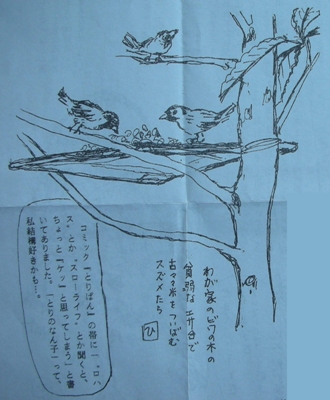 わが家のビワの木の
貧弱なエサ台で
古々米をついばむ
スズメたち
ひ
コミック「とりぱん」の帯に「〝ロハ
ス〟とか〝スローライフ〟とか聞くと、
ちょっと『ケッ』と思ってしまう」と書
いてありました。「とりのなん子」って、
私結構好きかも…。